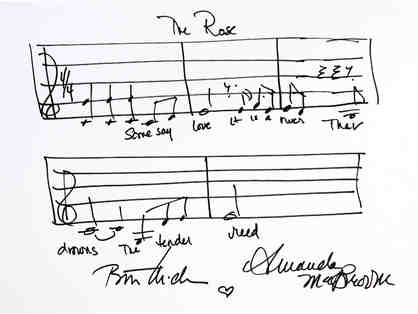 The Rose
4/4
Some say love It is a river That
drowns The tender reed
Amanda McBroom